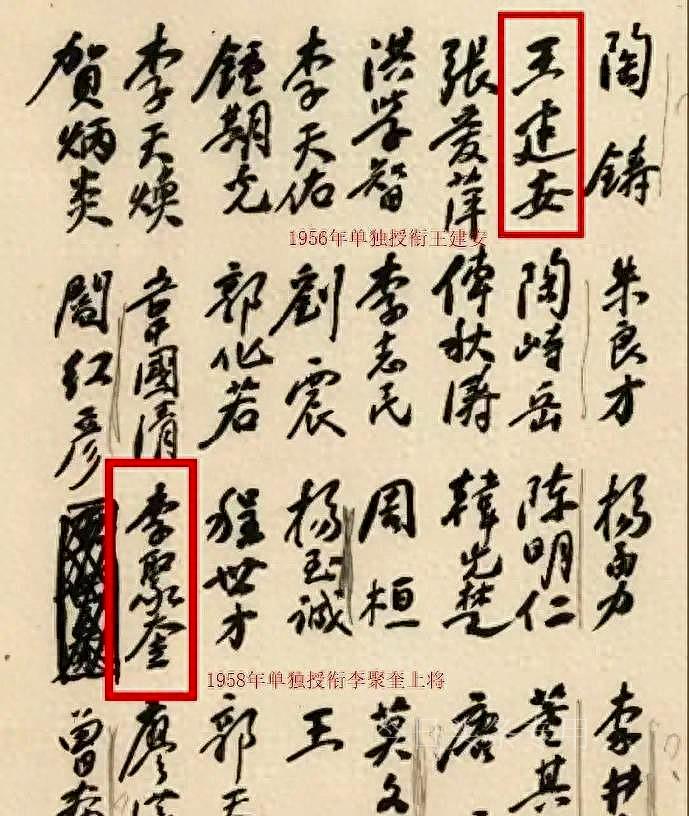 陶鑄 朱良才 杨勇 李井
王建安 陶峙岳 陈明仁 董其
張爱萍 傅秋涛 韓先楚 唐
洪学智 李志民 周桓 莫文
李天佑 劉震 杨至誠 王
鍾期光 郭化若 程世才 郭天
李天焕 韋國清 李聚奎 廖漢
賀炳炎 閻红彦 曾
1956年单独授衔王建安
1958年单独授衔李聚奎上将